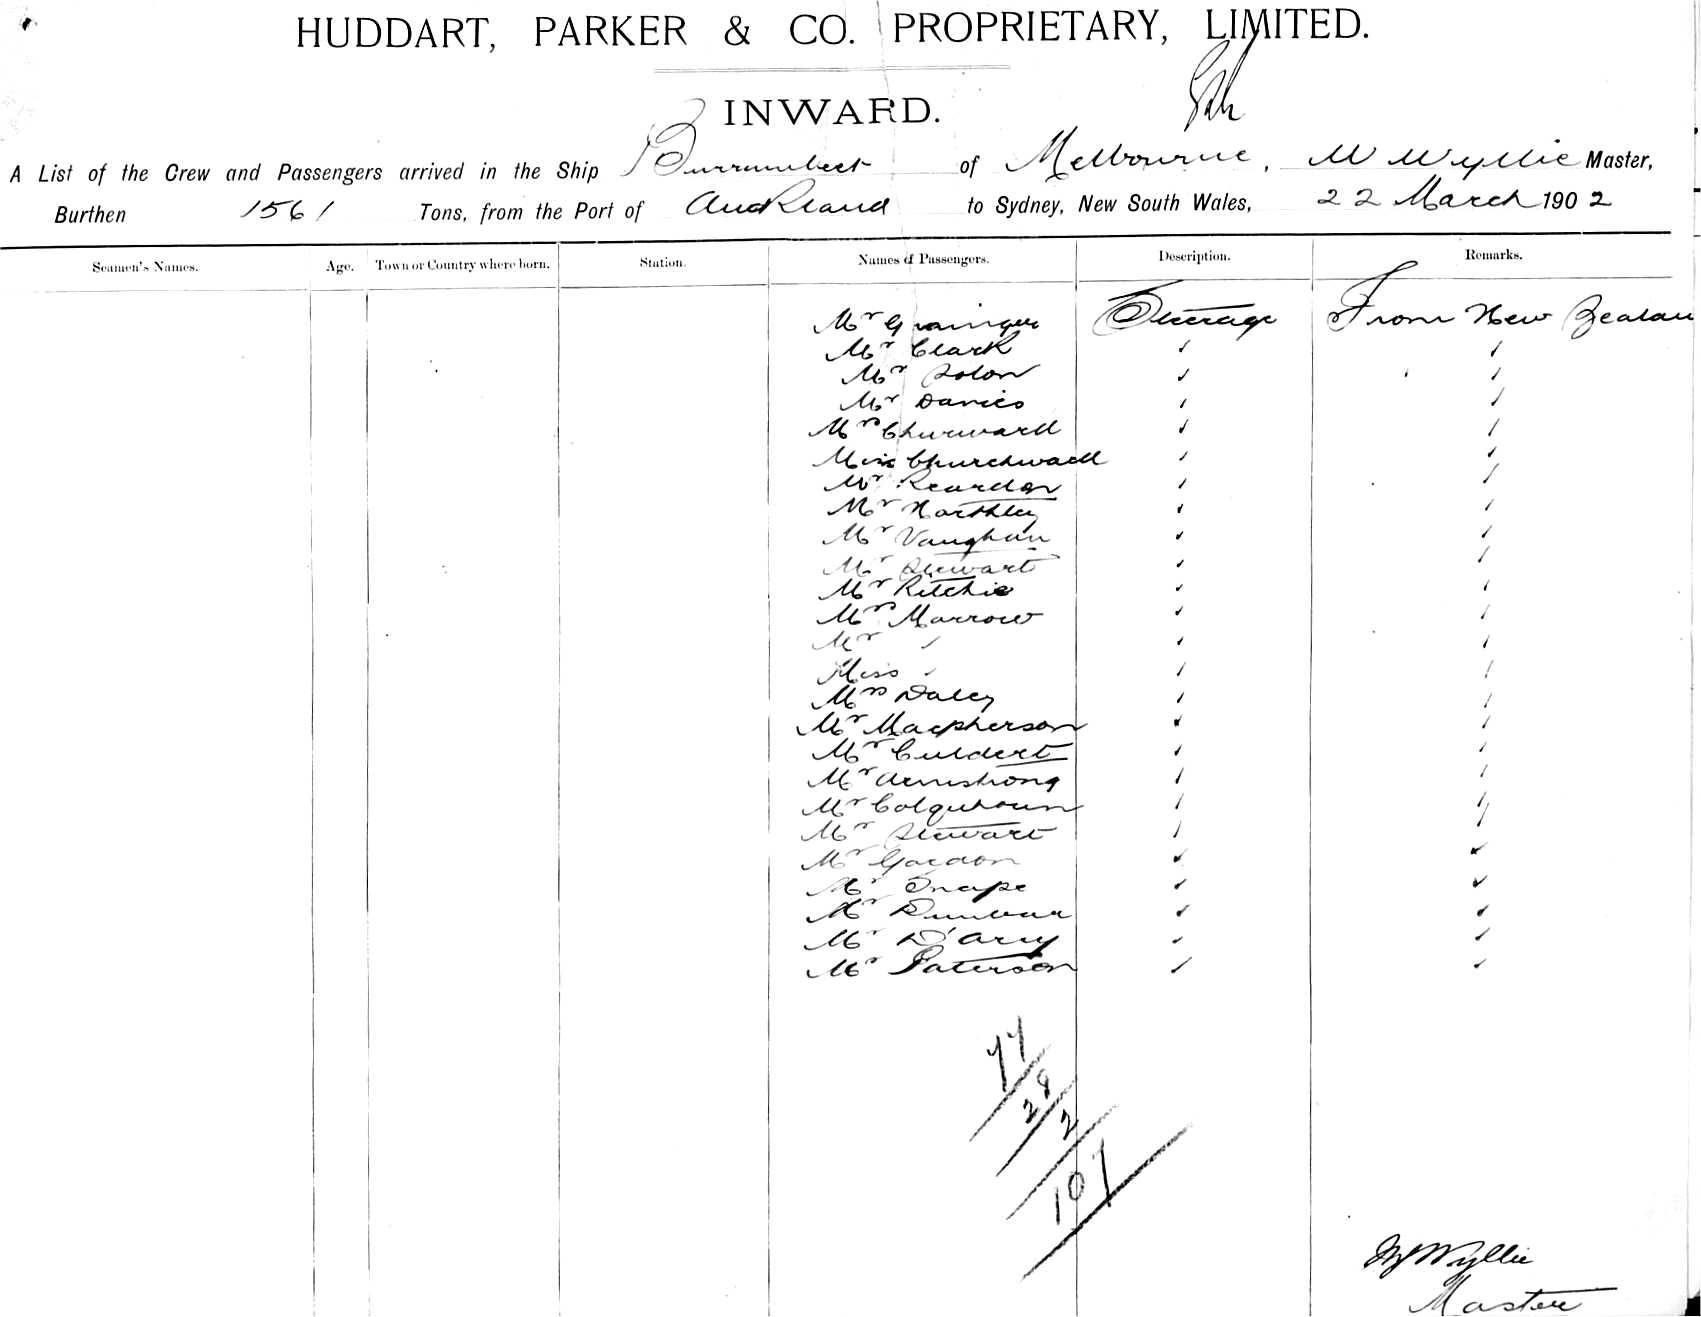 HUDDART, PARKER & CO. PROPRIETARY, LIMITED.
INWARD.
A List of the Crew and Passengers arrived in the Ship Burrumbeet of Melbourne, W Wyllie Master,
Burthen 1561 Tons, from the Port of Auckland to Sydney, New South Wales, 22 March 1902
Seamen's Names. Age. Town or Country where born. Station. Names of Passengers. Description. Remarks.
Mr Grainger Steerage From New Zealan
Mr Clark
Mr Solon
Mr Davies
Mrs Churward
Miss Churchward
Mr Reardon
Mr Northley
Mr Vaughan
Mr Stewart
Mr Ritchie
Mrs Marrow
Mr
Miss
Mrs Daley
Mr Macpherson
Mr Culdert
Mr Armstrong
Mr Colquhoun
Mr Stewart
Mr Gordon
Mr Snape
Mr Dunbar
Mr D'Arcy
Mr Paterson
77
28
2
107
W Wyllie
Master